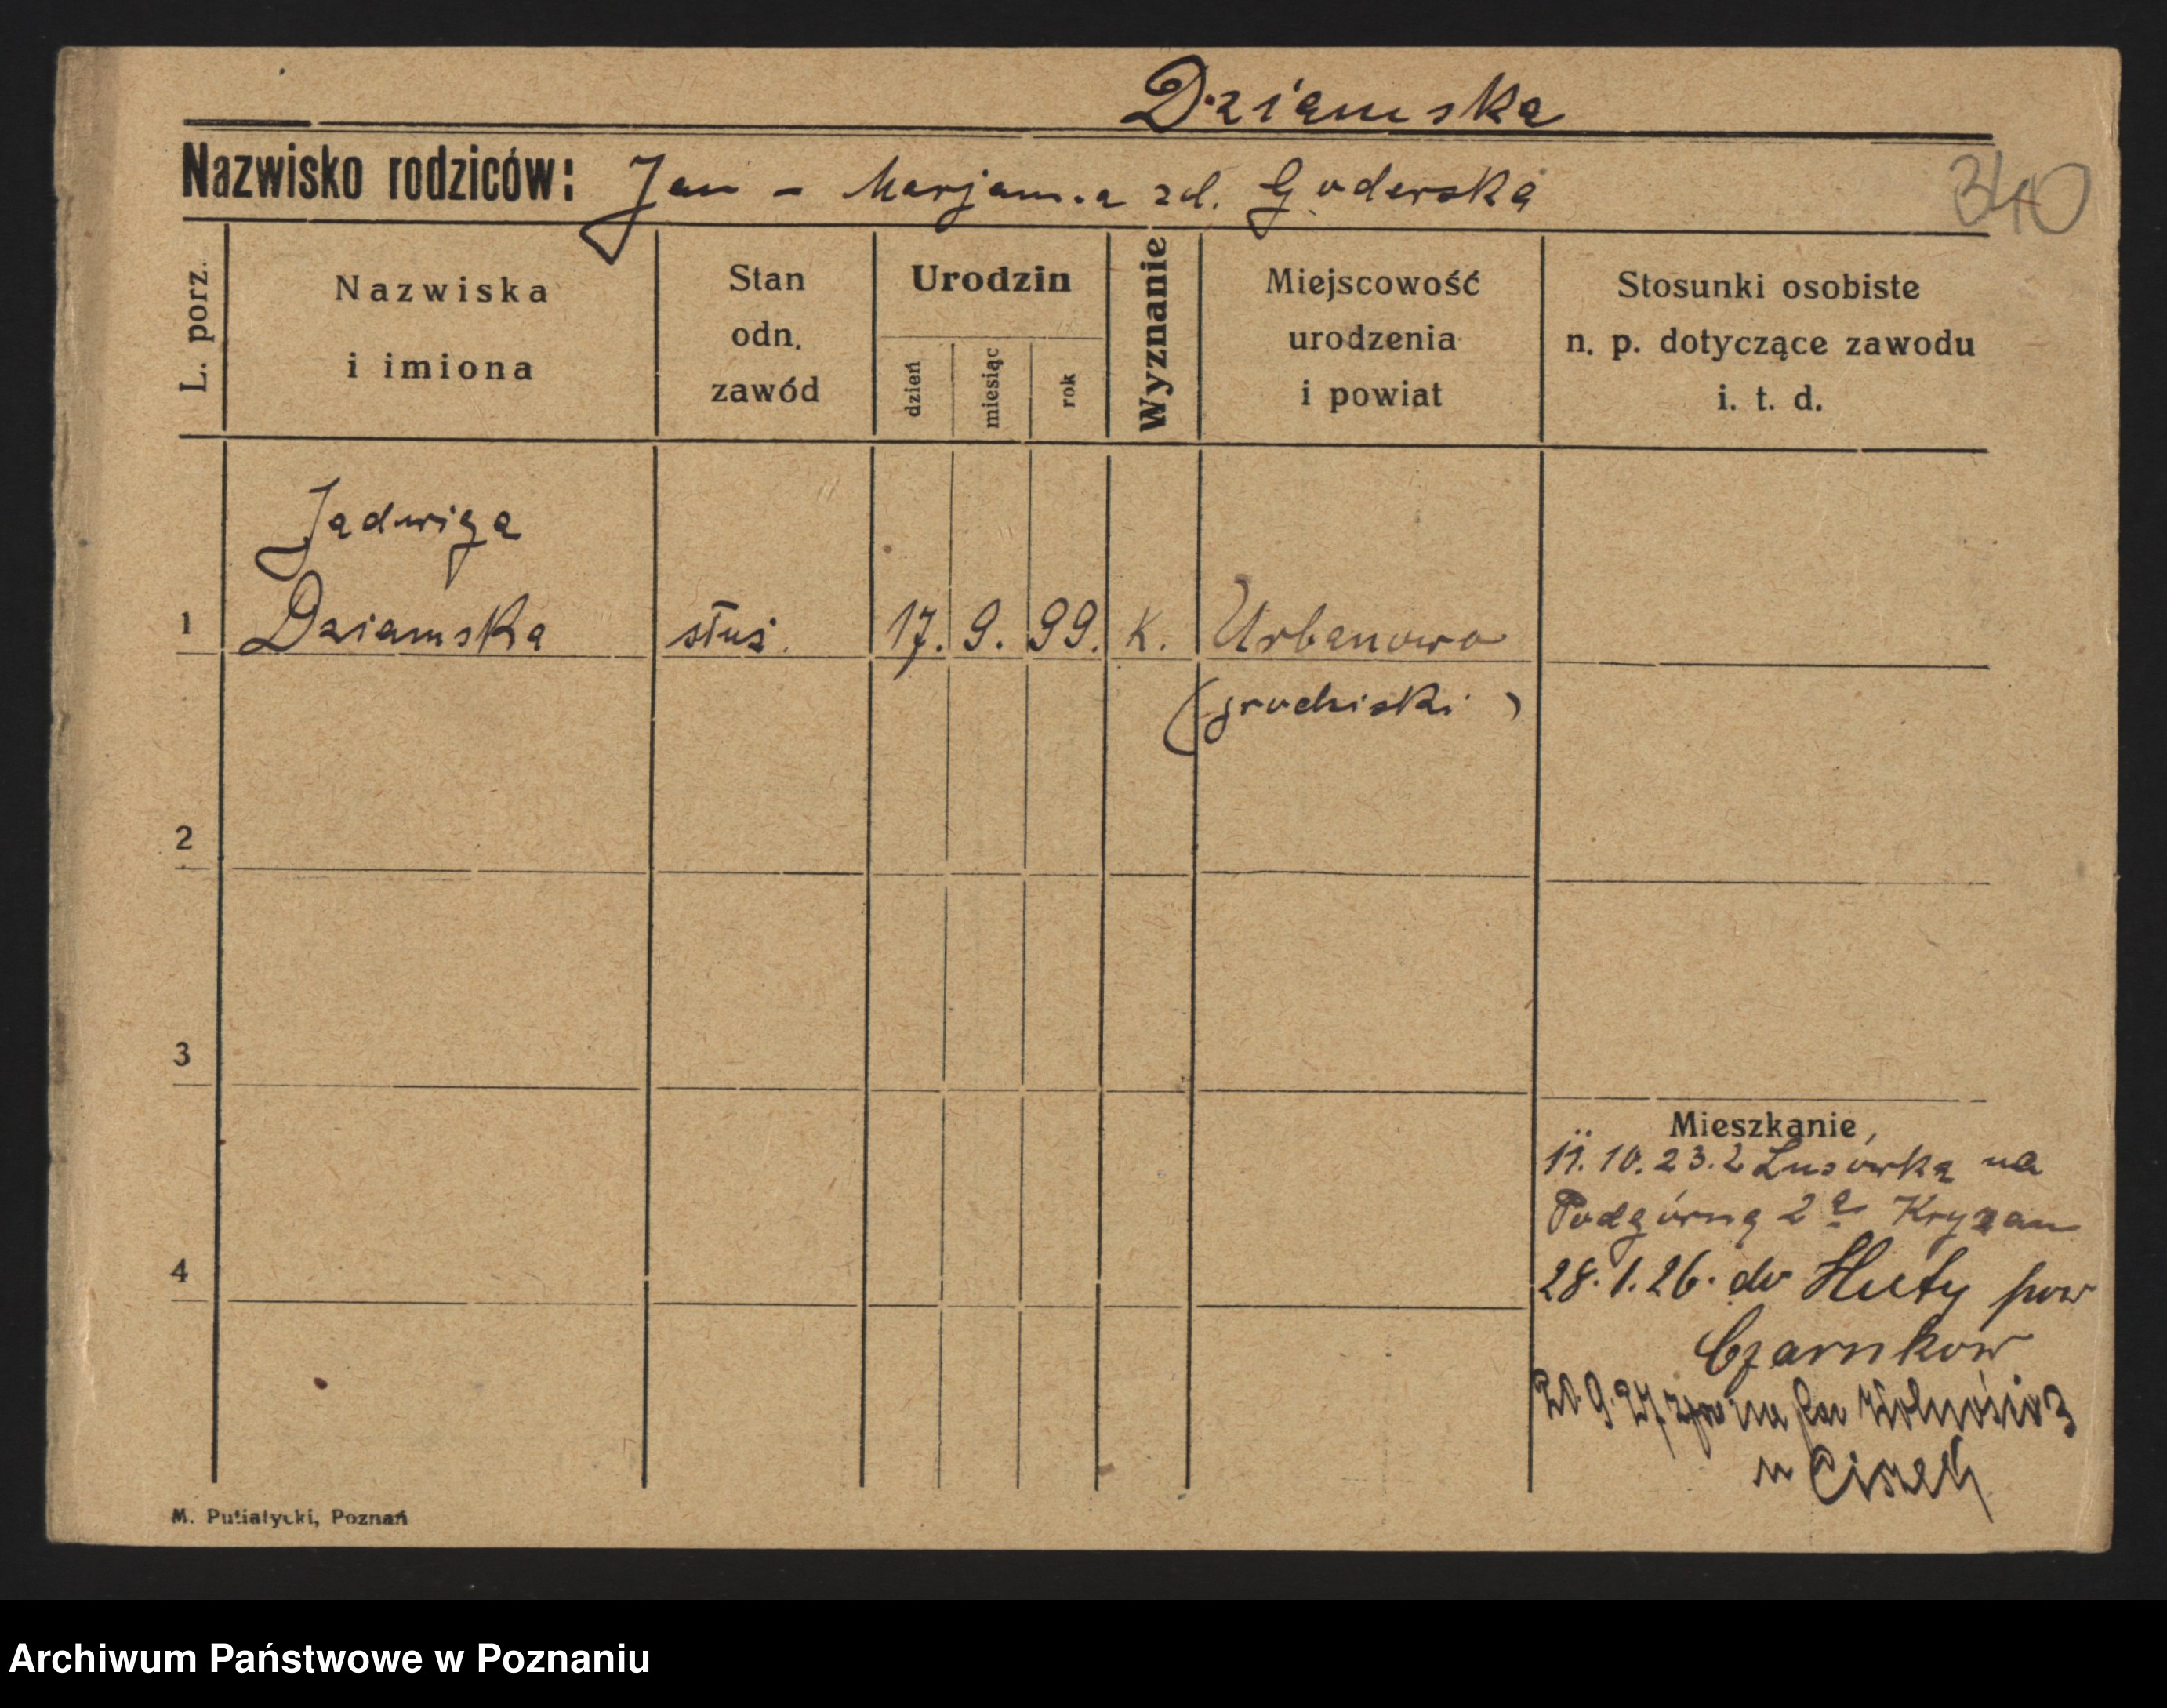 Dziamska
Nazwisko rodziców: Jan - Marjanna zd. Goderska
340
L. porz.
Nazwiska
i imiona
Stan
odn.
zawód
Urodzin
dzień
miesiąc
rok
Wyznanie
Miejscowość
urodzenia
i powiat
Stosunki osobiste
n. p. dotyczące zawodu
i. t. d.
Jadwiga
1 Dziamska służ. 17. 9. 99. K. Urbanowo
(grodziski)
2
3
4
Mieszkanie
11. 10. 23. z Lusówka na
Podgórną 2a Kryzan
28. 1. 26. do Huty pow
Czarnkow
20. 9. 27. na Wolności 3
u
M. Putiatycki, Poznań
Archiwum Państwowe w Poznaniu